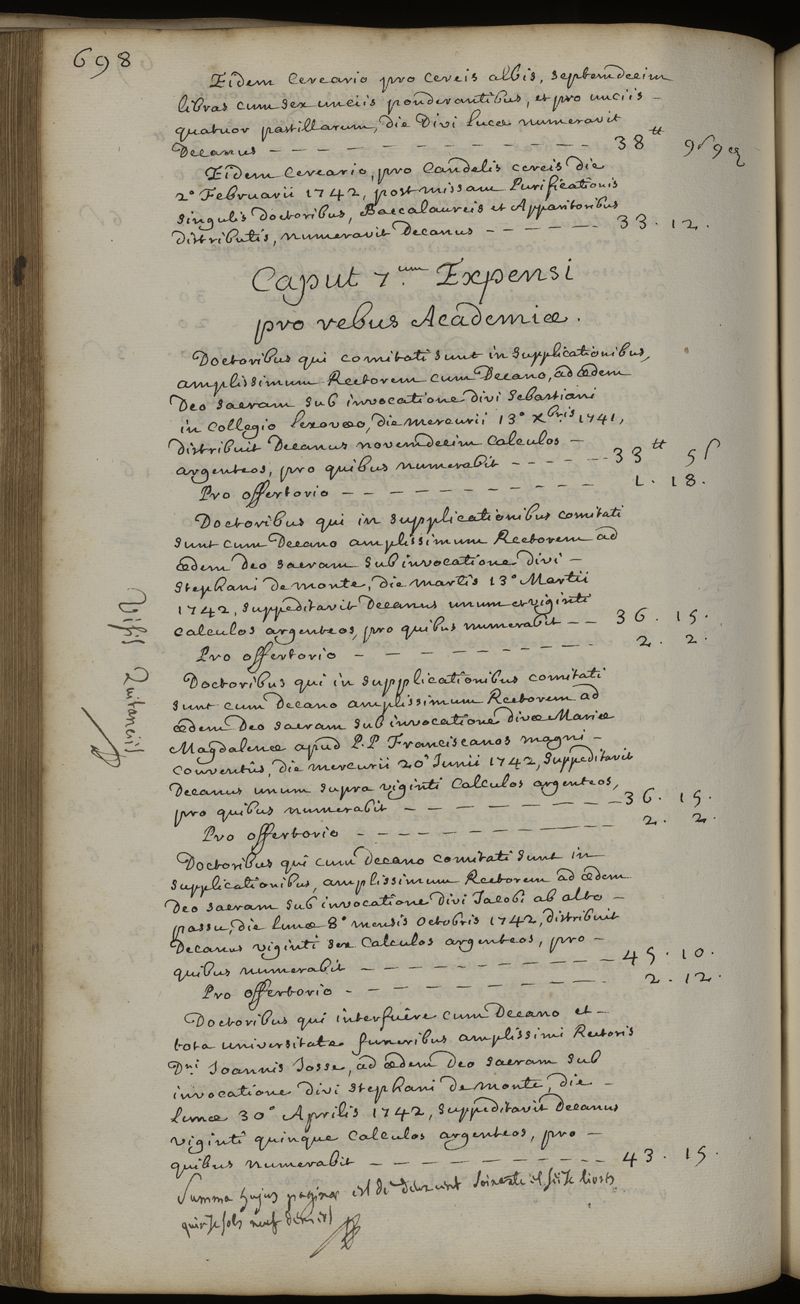 698
Eidem Cereario pro cereis albis, septemdecim
libras cum sex unciis ponderantibus, et pro unciis -
quatuor pastillarum, die Divi Lucæ numeravit
Decanus - - - - - - - - - - 38 tt 9 s 9 d
Eidem Cereario, pro Candelis cereis die
2ª Februarii 1742, post missam Purificationis
singulis Doctoribus, Baccalaureis et Apparitoribus
distributis, numeravit Decanus - - - - - - 33 . 12 .
Caput 7.um Expensi
pro rebus Academiæ.
Doctoribus qui comitati sunt in supplicationibus,
amplissimum Rectorem cum Decano, ad ædem
Deo sacram sub invocatione divi Sebastiani
in Collegio Lexovæo, die mercurii 13ª Xbris 1741,
distribuit Decanus novemdecim calculos -
argenteos, pro quibus numerabit - - - - - 33 tt 5 s
Pro offertorio - - - - - - - - - - 1 . 18 .
Doctoribus qui in supplicationibus comitati
sunt cum Decano amplissimum Rectorem ad
ædem Deo sacram sub invocatione divi -
Stephani de monte, die martis 13ª Martii
1742, suppeditavit Decanus unum et viginti
calculos argenteos, pro quibus numerabit - - 36 . 15 .
Pro offertorio - - - - - - - - - 2 . 2 .
Visis Quitanciis
Doctoribus qui in supplicationibus comitati
sunt cum Decano amplissimum Rectorem ad
ædem Deo sacram sub invocatione divæ Mariæ
Magdalenæ apud P.P Franciscanos magni -
conventûs, die mercurii 20ª Junii 1742, suppeditavit
Decanus unum supra viginti Calculos argenteos,
pro quibus numerabit - - - - - - - - 36 . 15 .
Pro offertorio - - - - - - - - - - 2 . 2 .
Doctoribus qui cum Decano comitati sunt in
supplicationibus, amplissimum Rectorem ad ædem
Deo sacram sub invocatione divi Jacobi ab alto -
passu, die lunæ 8ª mensis octobris 1742, distribuit
Decanus viginti sex Calculos argenteos, pro -
quibus numerabit - - - - - - - - - 45 . 10 .
Pro offertorio - - - - - - - - - 2 . 12 .
Doctoribus qui interfuêre cum Decano et -
tota universitate funeribus amplissimi Rectoris
D.ni Joannis Josse, ad ædem Deo sacram sub
invocatione divi Stephani de monte, die -
Lunæ 30ª Aprilis 1742, suppeditavit Decanus
viginti quinque Calculos argenteos, pro -
quibus numerabit - - - - - - - - - 43 . 15 .
Summa hujus paginæ est de deux cent soixante et seize livres
quinze sols neuf deniers